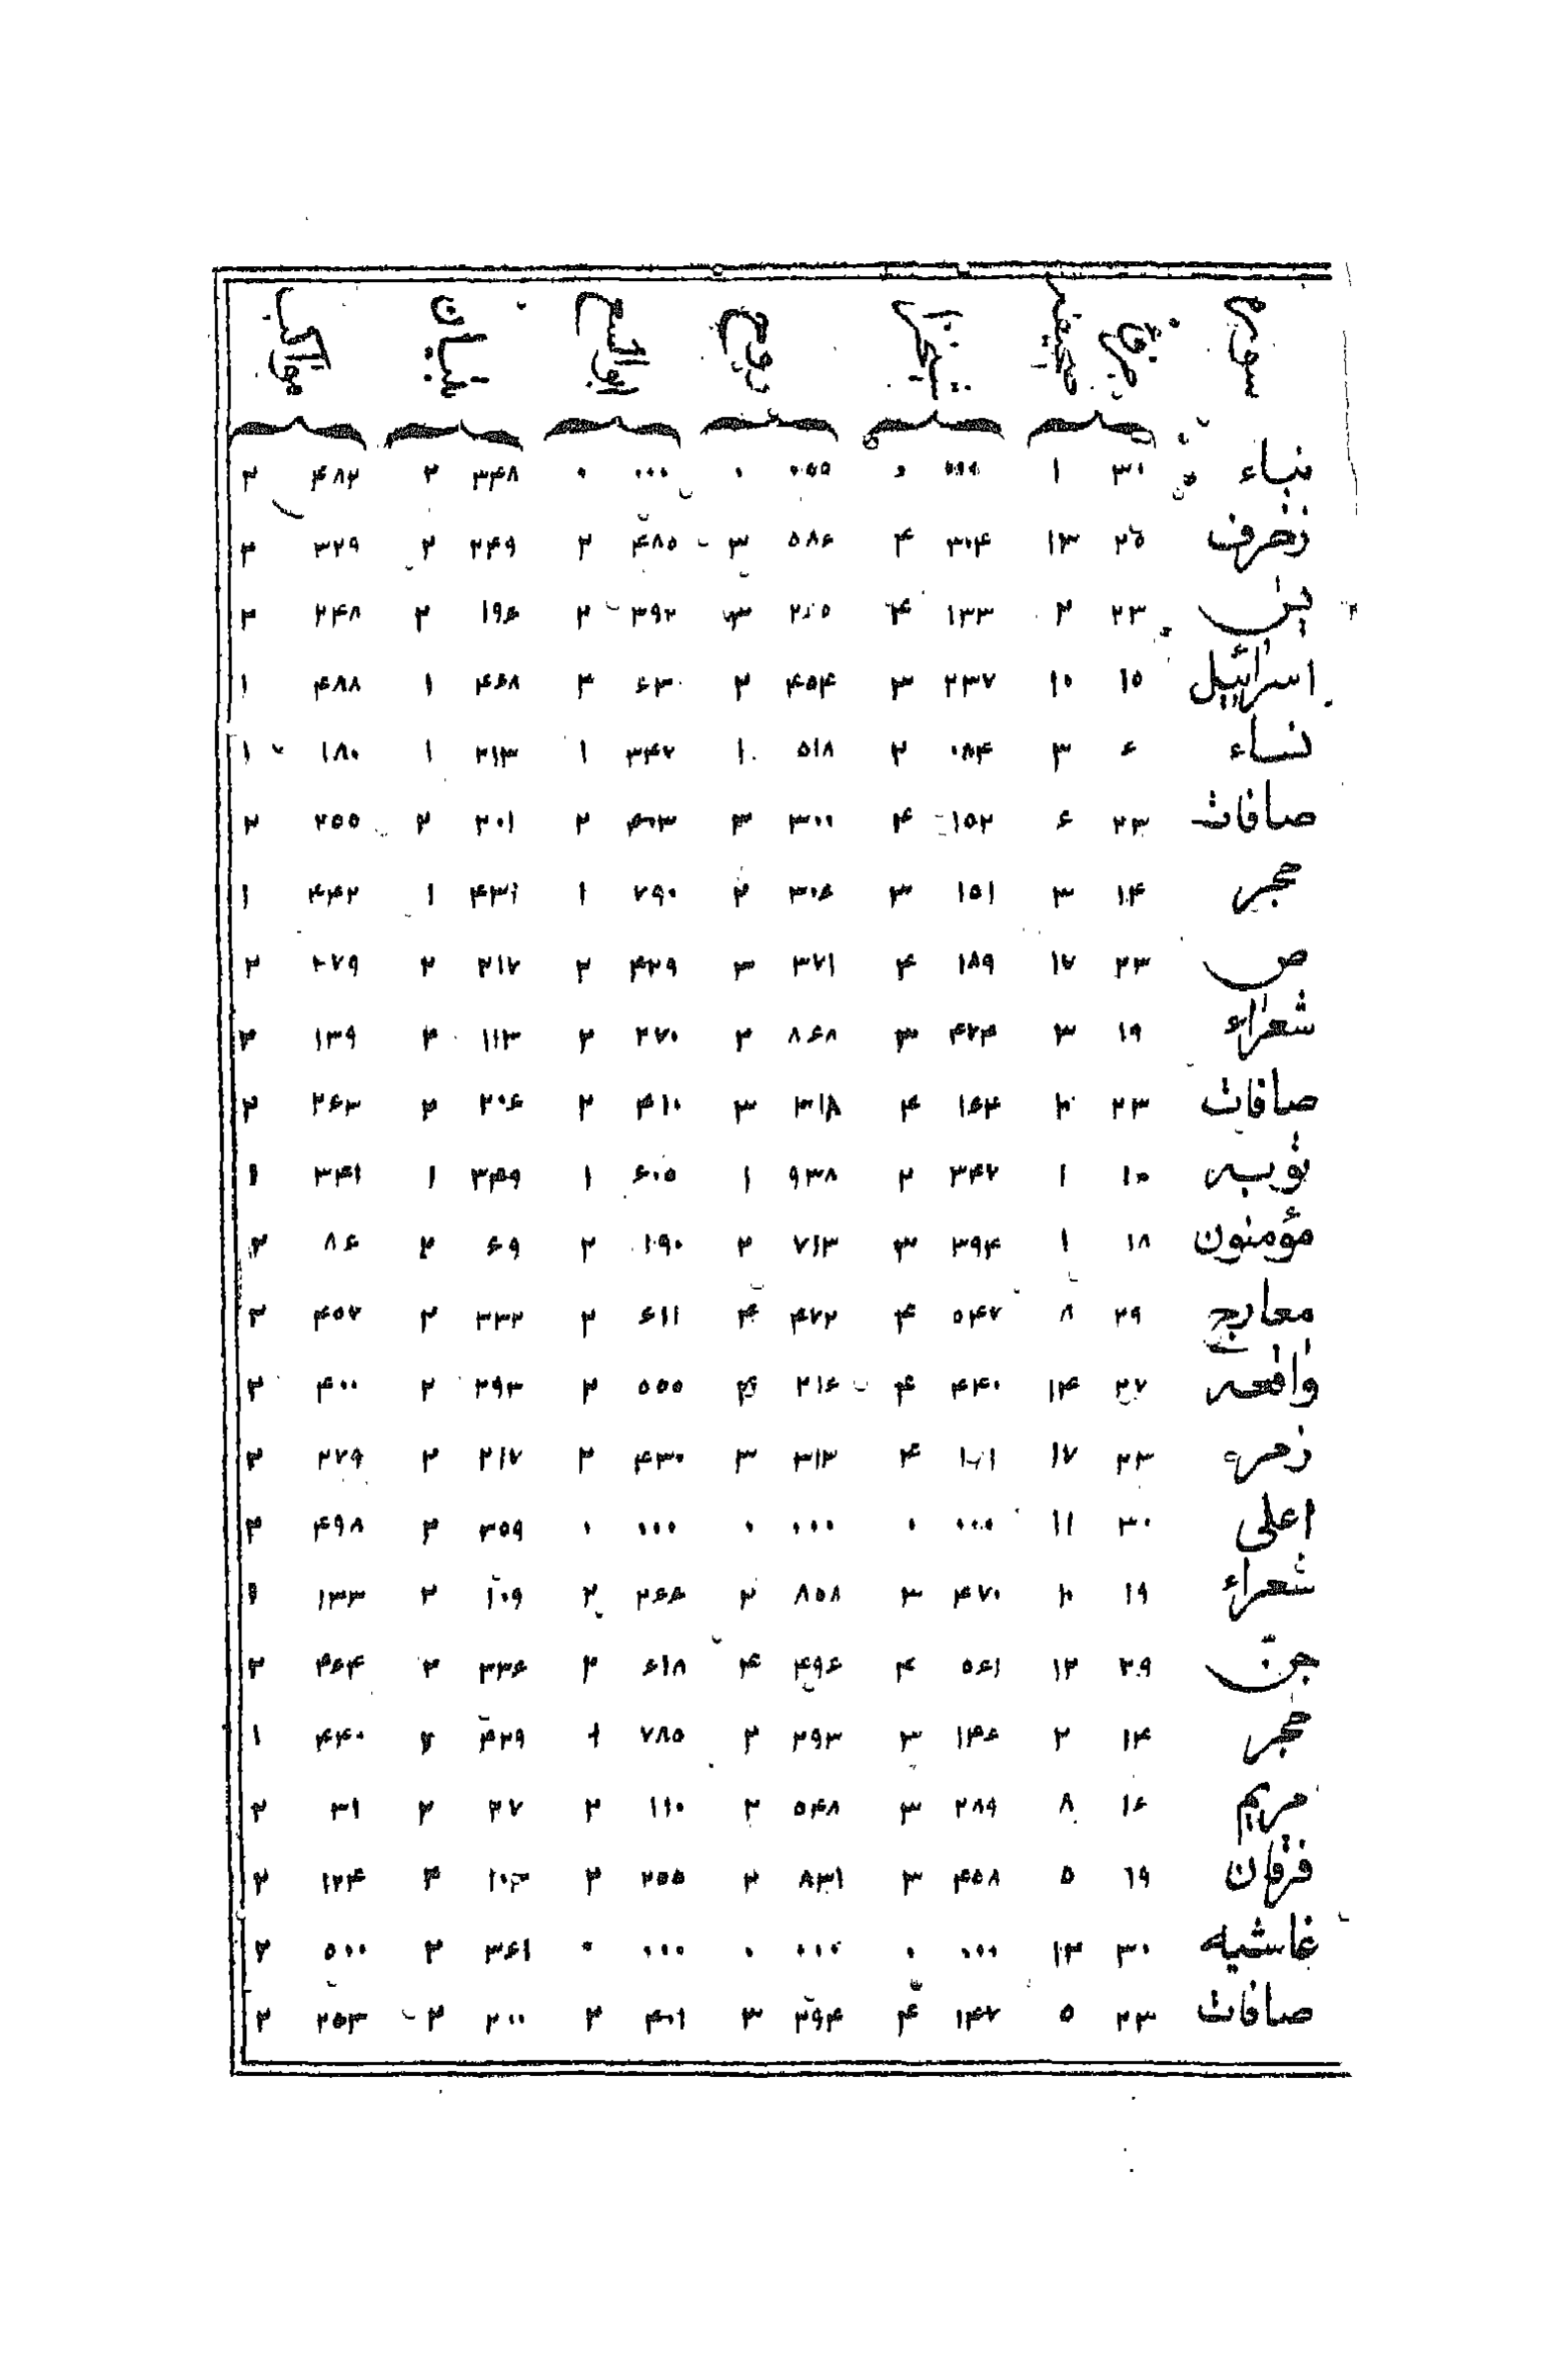 نباء ۳۰ ۱ ۰ ۰ ۰۰۰ ۰ ۳۴۸ ۲ ۴۸۲ ۲
زخرف ۲۵ ۱۳ ۳۰۴ ۴ ۵۸۶ ۳ ۴۸۵ ۲ ۲۴۹ ۲ ۳۲۹ ۲
یس ۲۳ ۲ ۱۳۳ ۴ ۳ ۳۹۲ ۲ ۱۹۶ ۲ ۲۴۸ ۲
اسرائیل ۱۵ ۱۰ ۲۳۷ ۳ ۴۵۴ ۲ ۶۳۰ ۲ ۴۶۸ ۱ ۴۸۸ ۱
نساء ۶ ۳ ۰۸۴ ۲ ۵۱۸ ۱ ۳۴۲ ۱ ۲۱۳ ۱ ۱۸۰ ۱
صافات ۲۳ ۶ ۱۵۲ ۴ ۳۰۰ ۳ ۴۰۳ ۲ ۲۰۱ ۲ ۲۵۵ ۲
حجر ۱۴ ۳ ۱۵۱ ۳ ۳۰۶ ۲ ۷۹۰ ۱ ۴۳۱ ۱ ۴۴۲ ۱
ص ۲۳ ۱۷ ۱۸۹ ۴ ۳۷۱ ۳ ۴۲۹ ۲ ۲۱۷ ۲ ۲۷۹ ۲
شعراء ۱۹ ۳ ۴۷۴ ۳ ۸۶۸ ۲ ۲۷۰ ۲ ۱۱۳ ۲ ۱۳۹ ۲
صافات ۲۳ ۱۶۴ ۴ ۳۱۸ ۳ ۴۱۰ ۲ ۲۰۶ ۲ ۲۶۳ ۲
توبه ۱۰ ۱ ۳۴۷ ۲ ۹۳۸ ۱ ۶۰۵ ۱ ۳۴۹ ۱ ۳۴۱ ۱
مؤمنون ۱۸ ۱ ۳۹۴ ۳ ۷۱۳ ۲ ۱۹۰ ۲ ۶۹ ۲ ۸۶ ۲
معارج ۲۹ ۸ ۵۴۷ ۴ ۴۷۲ ۴ ۶۱۱ ۲ ۳۳۲ ۲ ۴۵۷ ۲
واقعه ۲۷ ۱۴ ۴۴۰ ۴ ۲۱۶ ۴ ۵۵۵ ۲ ۲۹۳ ۲ ۴۰۰ ۲
زمر ۲۳ ۱۷ ۴ ۳۱۳ ۳ ۴۳۰ ۲ ۲۱۷ ۲ ۲۷۹ ۲
اعلی ۳۰ ۱۱ ۰۰۰ ۰ ۰۰۰ ۰ ۰۰۰ ۰ ۳۵۹ ۲ ۴۹۸ ۲
شعراء ۱۹ ۲ ۴۷۰ ۳ ۸۵۸ ۲ ۲۶۶ ۲ ۱۰۹ ۲ ۱۳۳
جن ۲۹ ۱۲ ۵۶۱ ۴ ۴۹۶ ۴ ۶۱۸ ۲ ۳۳۶ ۲ ۴۶۴ ۲
حجر ۱۴ ۲ ۱۴۶ ۳ ۲۹۳ ۲ ۷۸۵ ۱ ۴۲۹ ۴۴۰ ۱
مریم ۱۶ ۸ ۲۸۹ ۳ ۵۴۸ ۲ ۱۱۰ ۲ ۲۷ ۲ ۳۱ ۲
فرقان ۱۹ ۵ ۴۵۸ ۳ ۸۳۱ ۲ ۲۵۵ ۲ ۱۰۳ ۲ ۱۲۴ ۲
غاشیه ۳۰ ۱۳ ۰۰۰ ۰ ۰۰۰ ۰ ۰۰۰ ۰ ۳۶۱ ۲ ۵۰۰ ۲
صافات ۲۳ ۵ ۱۴۷ ۴ ۲۹۴ ۳ ۴۰۱ ۲ ۲۰۰ ۲ ۲۵۳ ۲